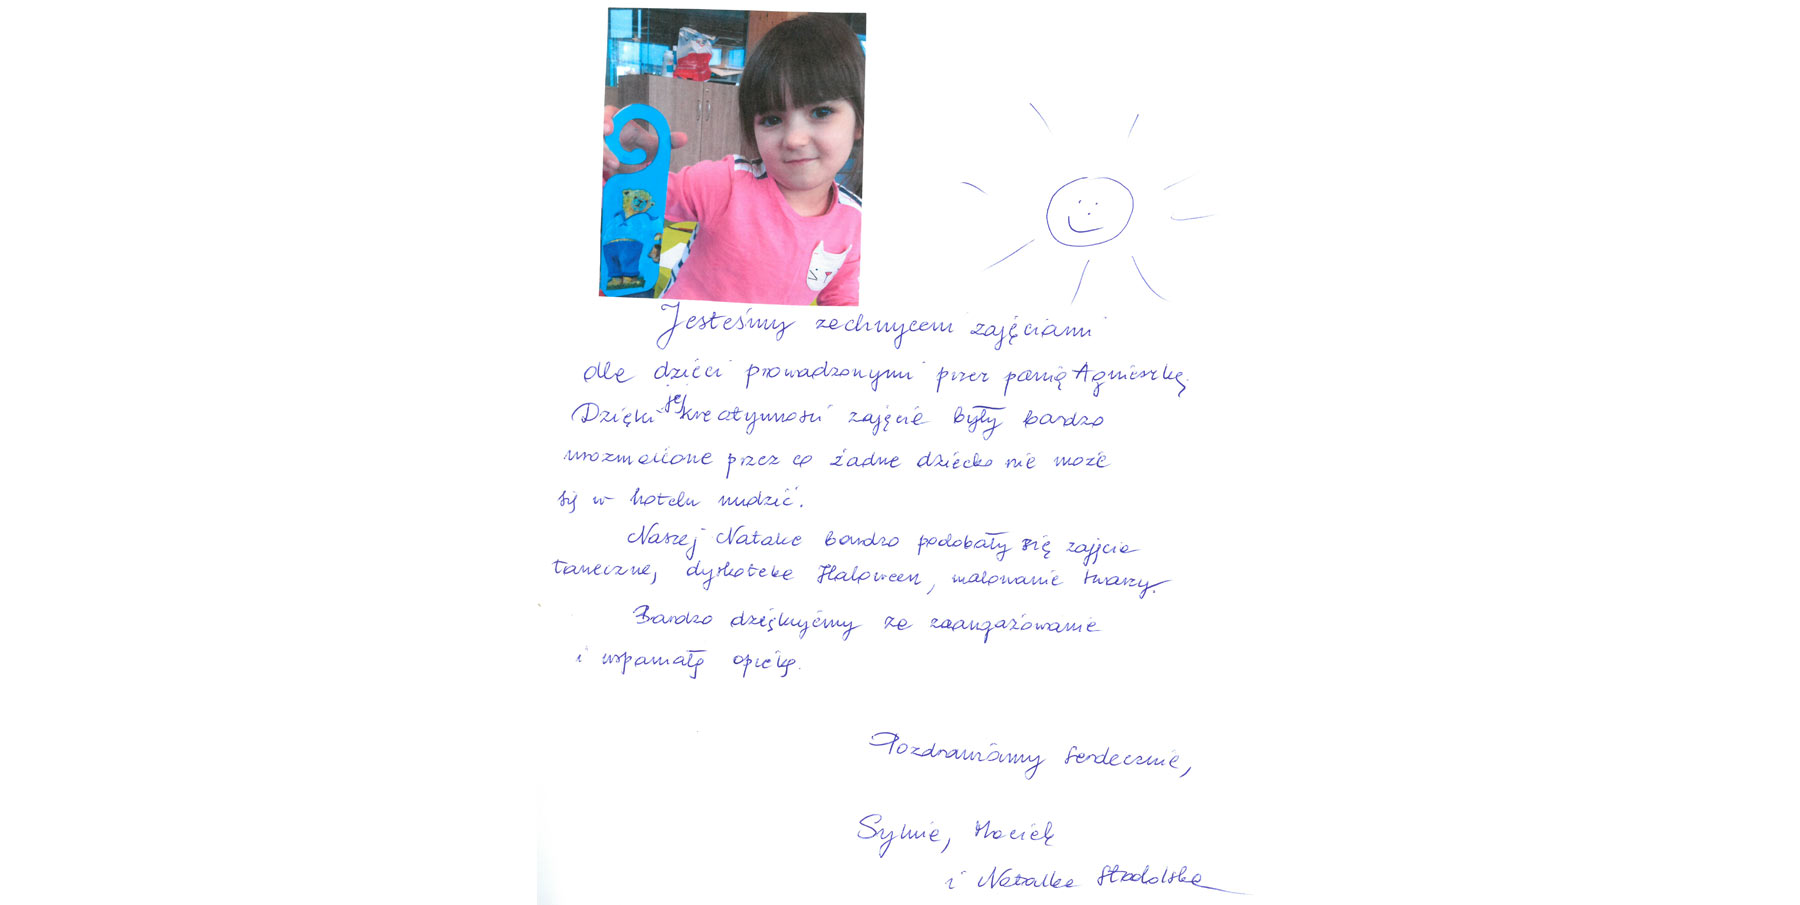 Jesteśmy zachwyceni zajęciami
dla dzieci prowadzonymi przez panią Agnieszkę.
Dzięki jej kreatywności zajęcia były bardzo
urozmaicone przez co żadne dziecko nie może
się w hotelu nudzić.
Naszej Natalce bardzo podobały się zajęcia
taneczne, dyskoteka Haloween, malowanie twarzy.
Bardzo dziękujemy za zaangażowanie
i wspaniałą opiekę.
Pozdrawiamy serdecznie,
Sylwia, Maciek
i Natalka Stodolska